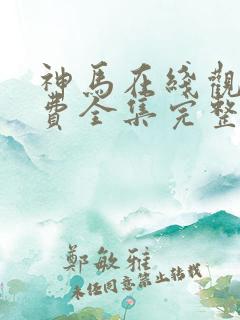 神馬在綫觀
費全集完整
鄭敏雅
未经同意禁止转载